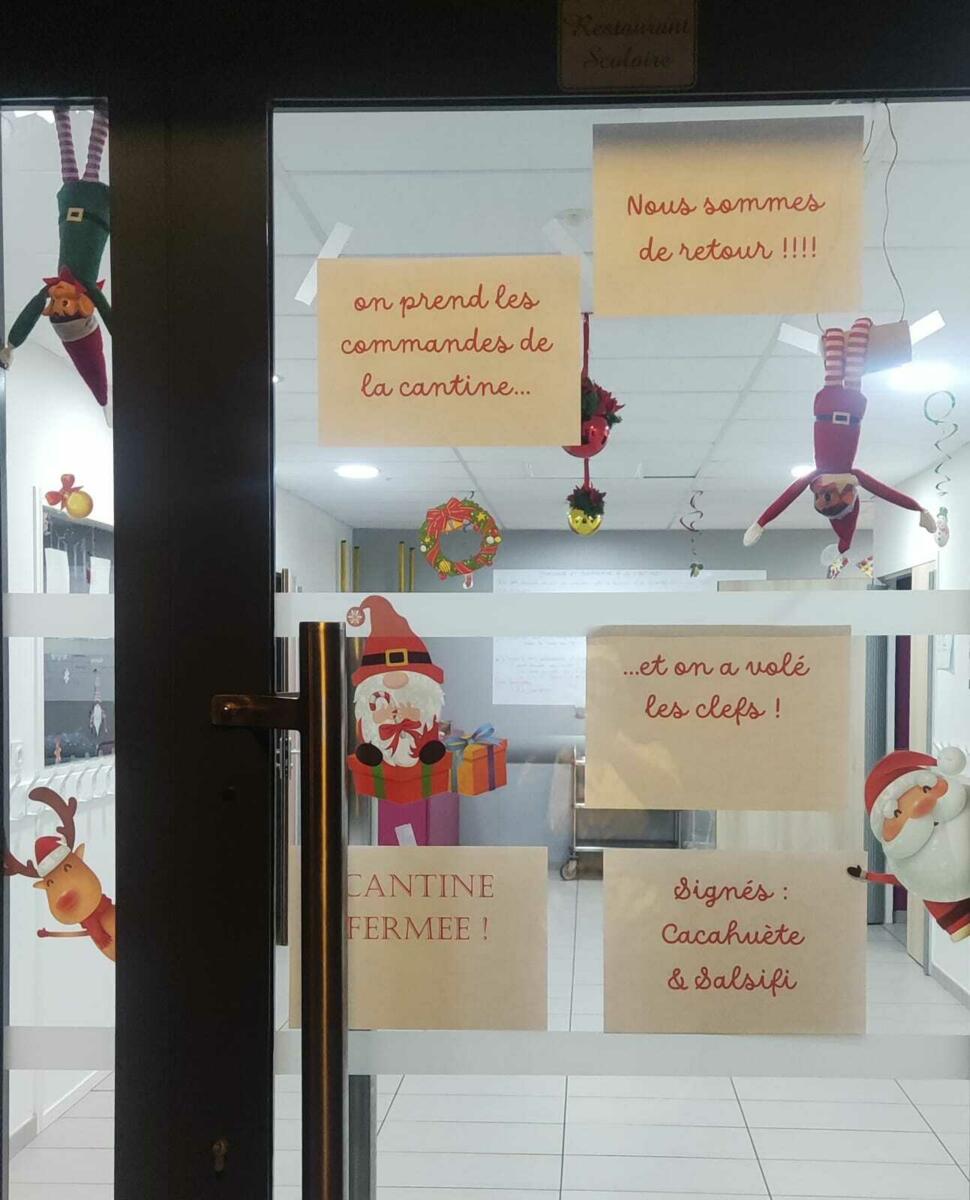 Restaurant
Scolaire
Nous sommes
de retour !!!!
on prend les
commandes de
la cantine...
...et on a volé
les clefs !
CANTINE
FERMEE !
Signés :
Cacahuète
& Salsifi